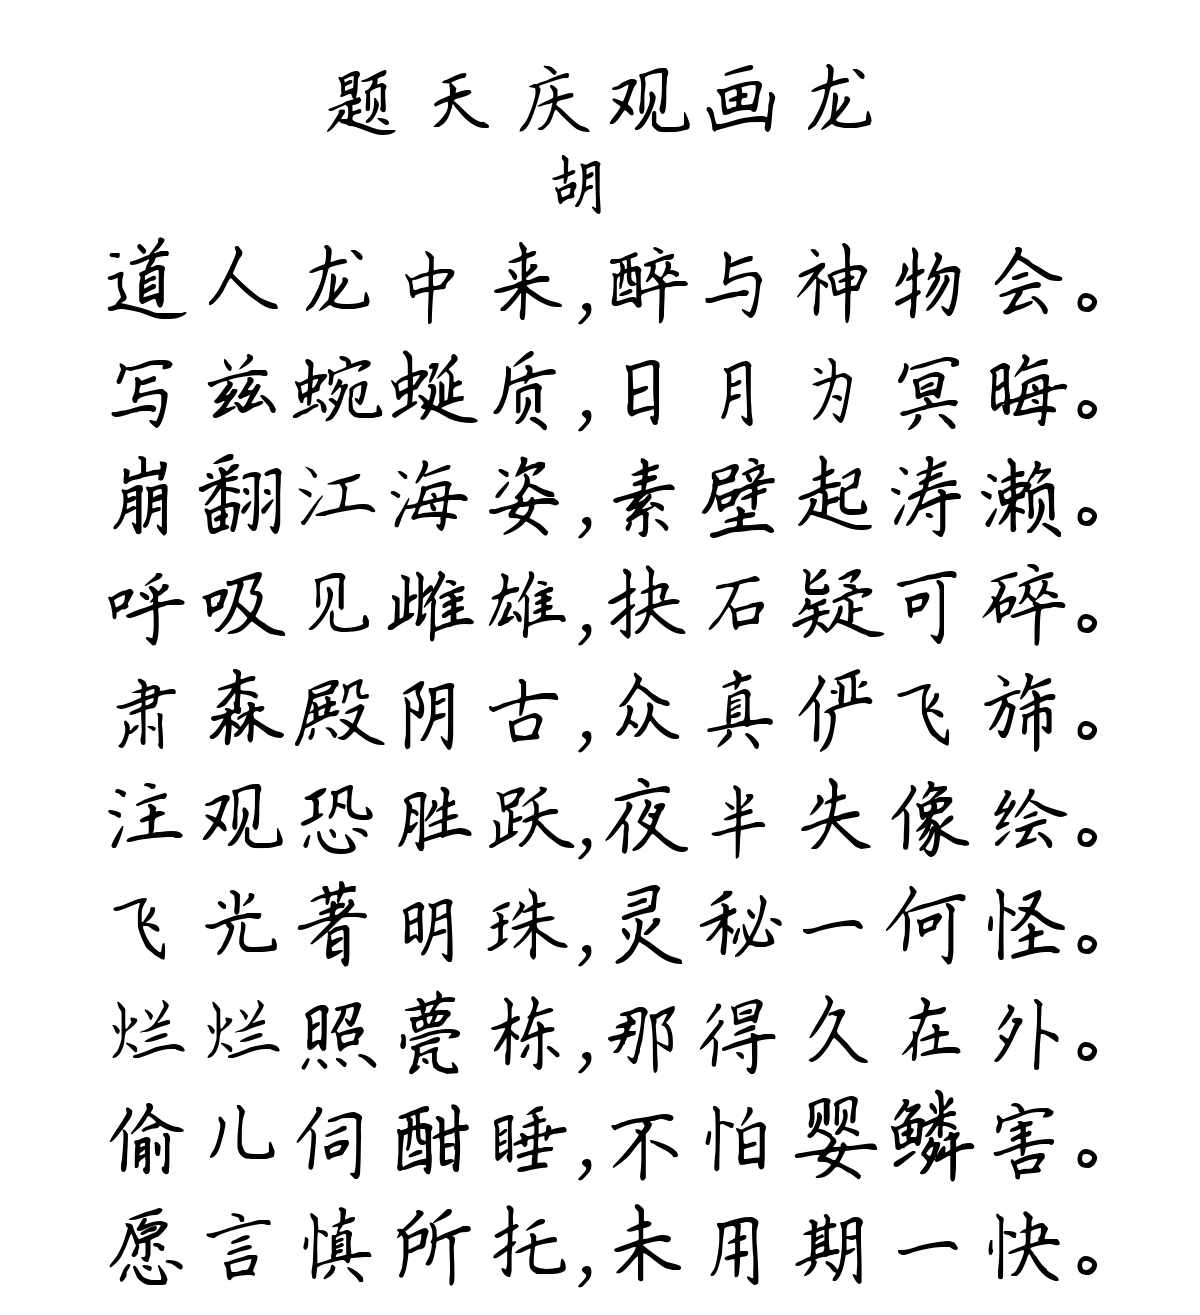 题天庆观画龙
胡
道人龙中来,醉与神物会。
写兹蜿蜒质,日月为冥晦。
崩翻江海姿,素壁起涛濑。
呼吸见雌雄,抉石疑可碎。
肃森殿阴古,众真俨飞旆。
注观恐胜跃,夜半失像绘。
飞光著明珠,灵秘一何怪。
烂烂照甍栋,那得久在外。
偷儿伺酣睡,不怕婴鳞害。
愿言慎所托,未用期一快。